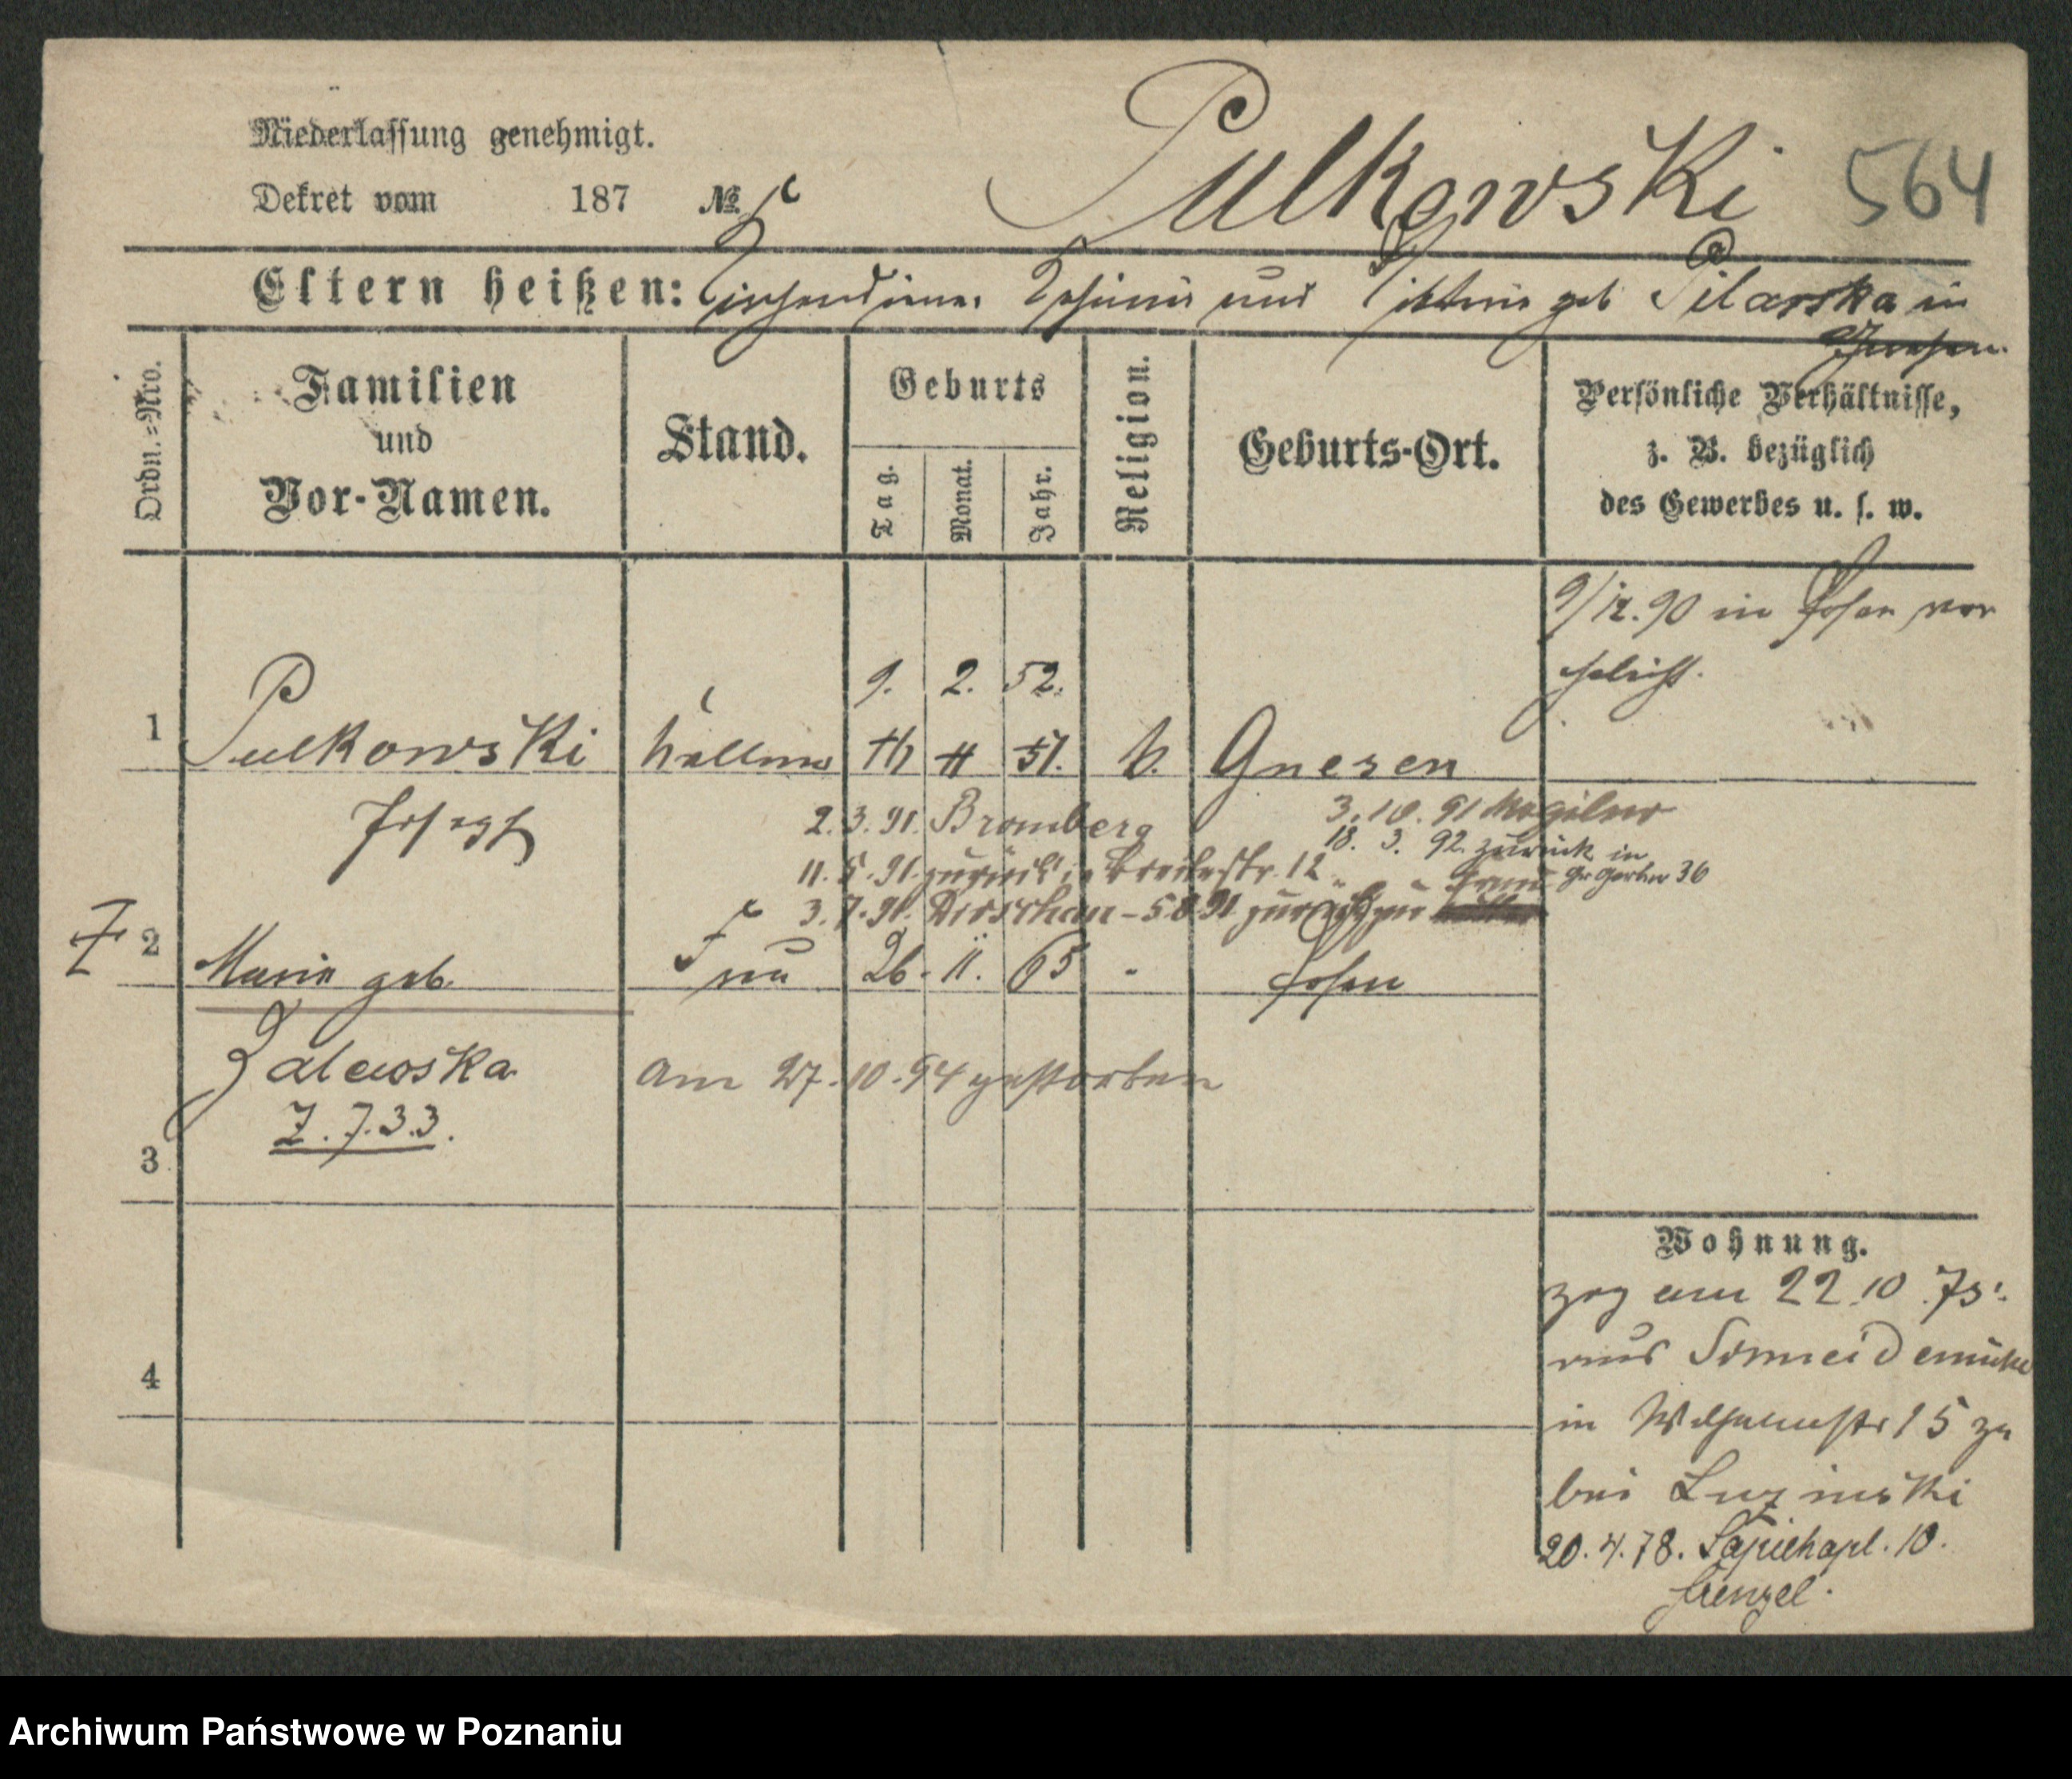 Niederlassung genehmigt.
Dekret vom 187 №
Pulkowski 564
Eltern heißen: und geb Pilarska in
Gnesen.
Ordn.=Nro.
Familien
und
Vor-Namen.
Stand.
Geburts
Tag.
Monat.
Jahr.
Religion.
Geburts-Ort.
Persönliche Verhältnisse,
z. B. bezüglich
des Gewerbes u. s. w.
9/12.90 in Posen ver
ehelicht.
9. 2. 52.
1 Pulkowski Kellner 51. k. Gnesen
Joseph
2.3.91. Bromberg 3.10.91 Mogilno
18. 3. 92. zurück in
11.5.91. zurück in Breitestr. 12 Gr Gerber 36
3.7.91. Dirschau - 5.8.91 zurück zur
2 Marie geb. Frau 26. 11. 65 " Posen
Zalewska am 27.10.94 gestorben
Z. 7.33.
3
4
Wohnung.
zog am 22.10.75.
aus Schneidemühl
in Wilhelmstr 15 zu
bei
20.4.78. Sapiehapl. 10.
Frenzel.
Archiwum Państwowe w Poznaniu